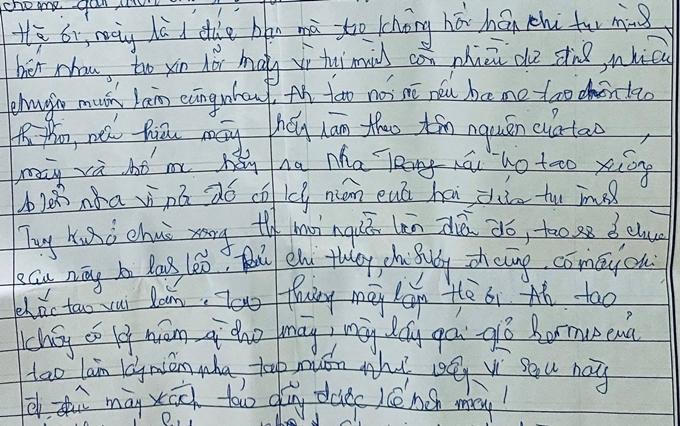 cho mẹ
Hà ơi, mày là 1 đứa bạn mà tao không hối hận khi tụi mình
biết nhau, tao xin lỗi mày vì tụi mình còn nhiều dự định, nhiều
chuyện muốn làm cùng nhau. tao nói rõ nếu ba mẹ tao chôn tao
thì thôi, nếu thiêu mày hãy làm theo tâm nguyện của tao,
mày và bố mẹ hãy ra nha Trang rải tro tao xuống
biển nha vì nơi đó có kỷ niệm của hai đứa tụi mình
Tuy ở chùa xong thì mọi người lên điện đó, tao sợ ở chùa
sau này bị Chị thủy, chị đi cùng. có mấy chị
chắc tao vui lắm. tao thương mày lắm Hà ơi. tao
không có kỷ niệm gì cho mày, mày lấy cái giỏ hermes của
tao làm kỷ niệm nha tao muốn như vậy vì sau này
đi đâu mày xách tao cũng được kế bên mày!